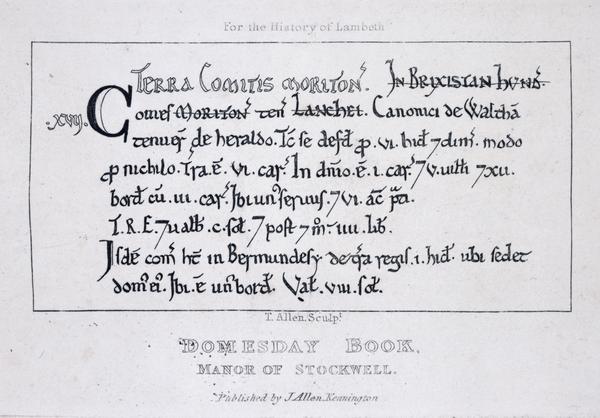 For the History of Lambeth
TERRA COMITIS MORITON̄. IN BRIXISTAN HVND.
.XVII. Comes MORITON̄ teń LANCHEI. Canonici de Walthā
tenueŕ de heraldo. Tc̄ se defd̄ ꝓ .VI. hid̄ ⁊ dim̄. modo
ꝓ nichilo. Tŕa.ē. VI. caŕ. In dn̄io.ē.I. caŕ ⁊ V. uilli ⁊ XII.
bord̄ cū .III. caŕ. Ibi un᷒ seruus. ⁊ VI. ac̄ p̄ti.
T.R.E. ⁊ ualb̄ .C. sol̄. ⁊ post ⁊ m̊ IIII. lib̄.
Isdē com̄ ht̄ in Bermundesy de tr̄a regis .I. hid̄. ubi sedet
dom᷒ ei᷒. Ibi.ē un᷒ bord̄. Val̄. VIII. sol̄.
T. Allen. Sculpt.
DOMESDAY BOOK,
MANOR OF STOCKWELL.
Published by J Allen. Kennington